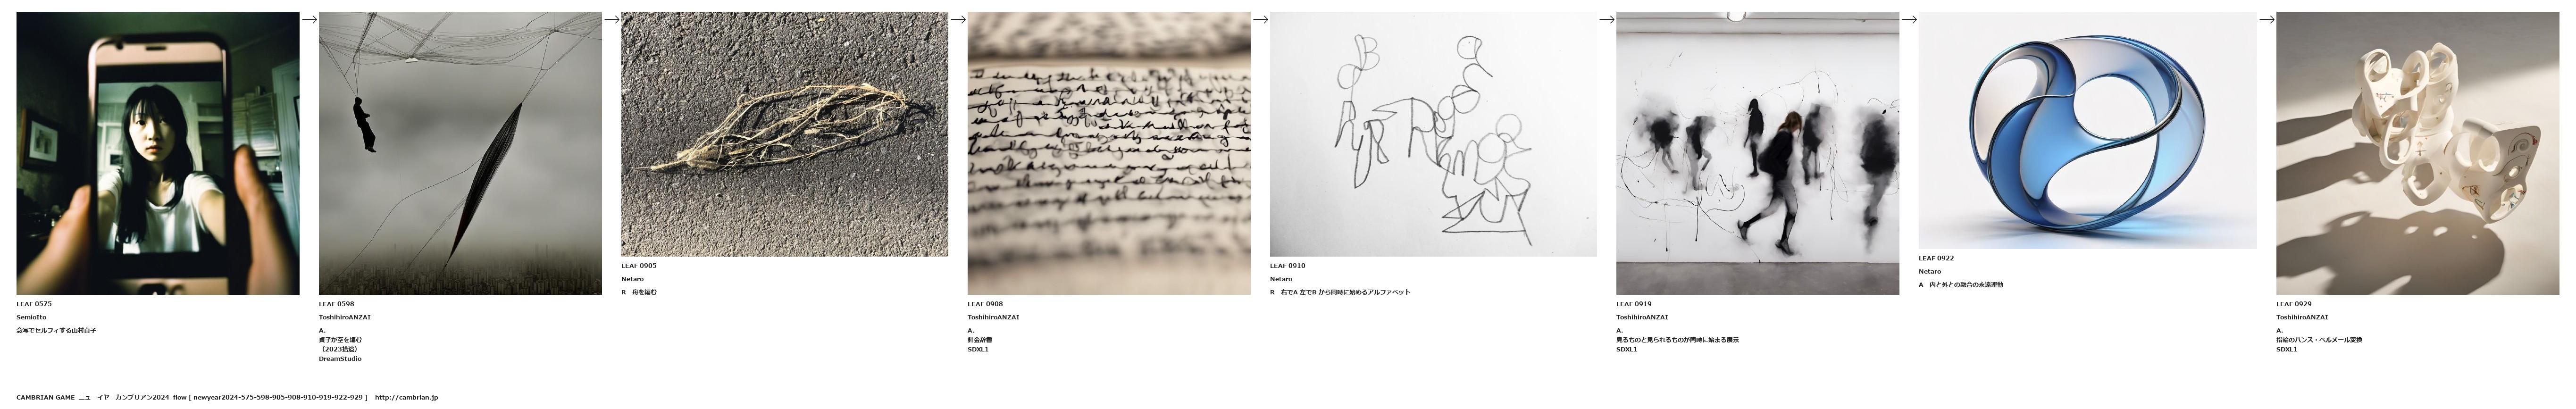 LEAF 0575
SemioIto
念写でセルフィする山村貞子
LEAF 0598
ToshihiroANZAI
A.
貞子が空を編む
（2023拾遺）
DreamStudio
LEAF 0905
Netaro
R　舟を編む
LEAF 0908
ToshihiroANZAI
A.
針金辞書
SDXL1
LEAF 0910
Netaro
R　右でA 左でB から同時に始めるアルファベット
LEAF 0919
ToshihiroANZAI
A.
見るものと見られるものが同時に始まる展示
SDXL1
LEAF 0922
Netaro
A　内と外との融合の永遠運動
LEAF 0929
ToshihiroANZAI
A.
指輪のハンス・ベルメール変換
SDXL1
CAMBRIAN GAME ニューイヤーカンブリアン2024 flow [ newyear2024-575-598-905-908-910-919-922-929 ] http://cambrian.jp